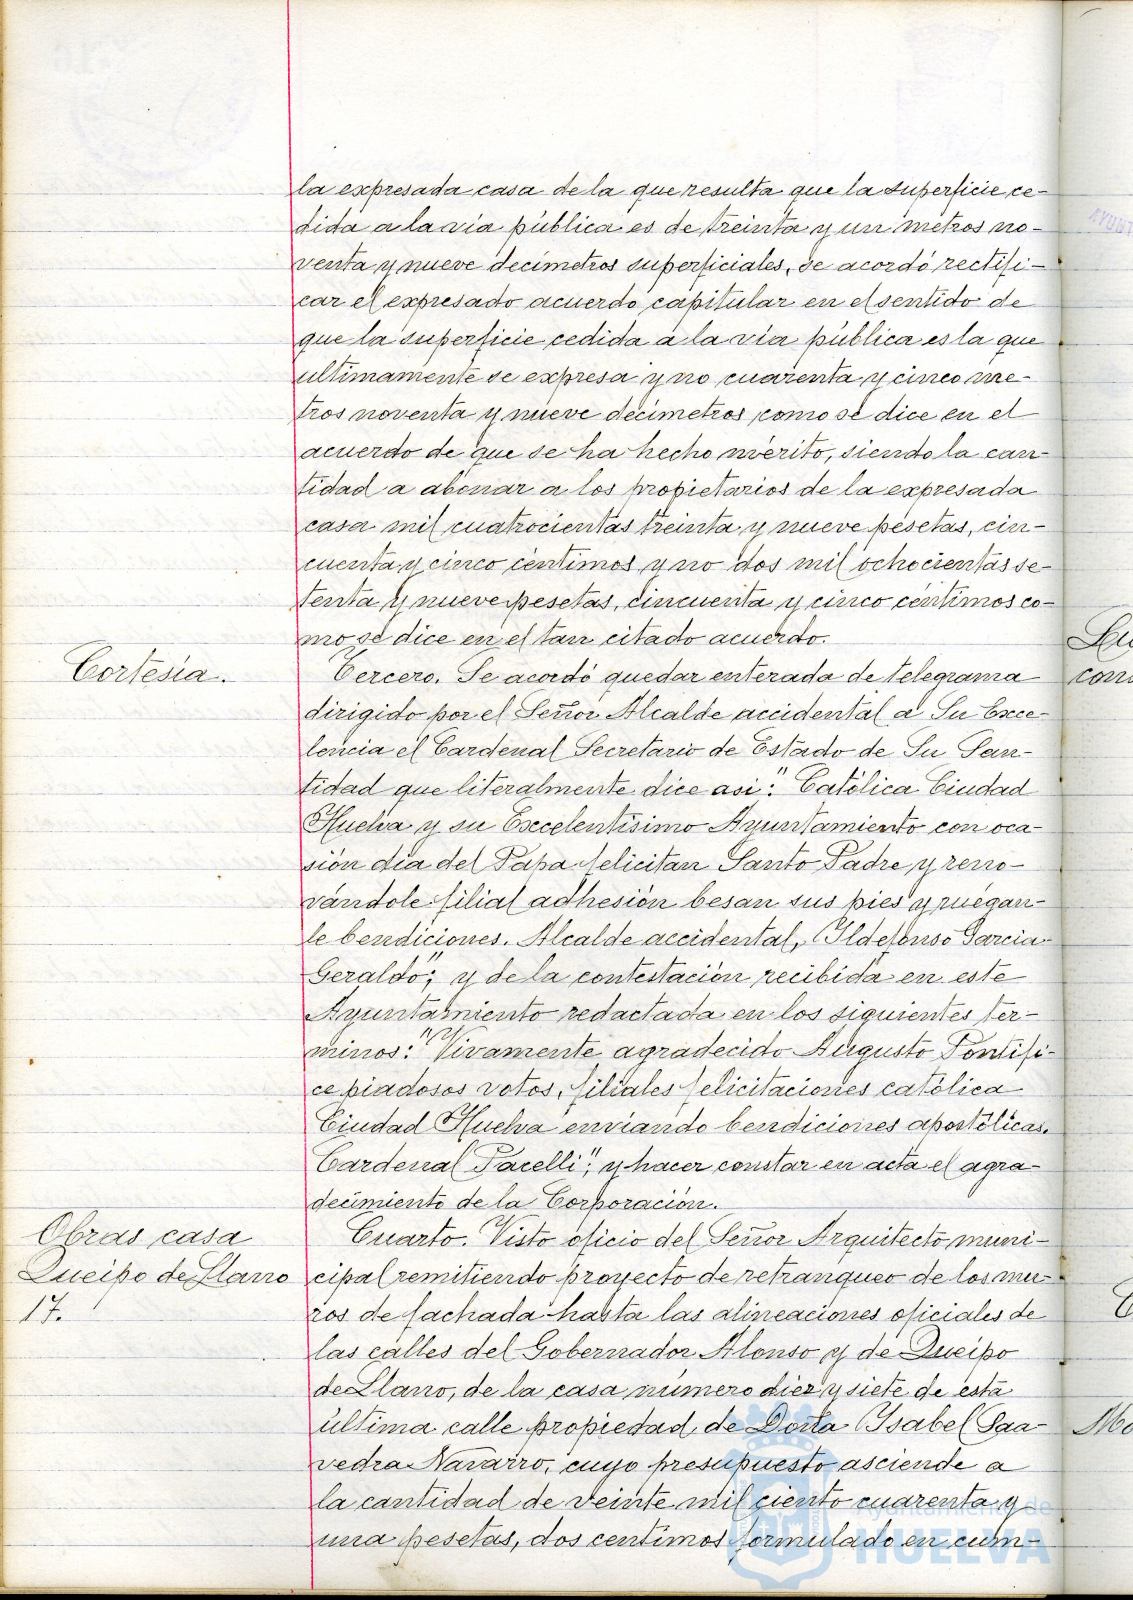 la expresada casa de la que resulta que la superficie ce-
dida a la vía pública es de treinta y un metros no-
venta y nueve decimetros superficiales, se acordó rectifi-
car el expresado acuerdo capitular en el sentido de
que la superficie cedida a la vía pública es la que
ultimamente se expresa y no cuarenta y cinco me-
tros noventa y nueve decímetros como se dice en el
acuerdo de que se ha hecho mérito, siendo la can-
tidad a abonar a los propietarios de la expresada
casa mil cuatrocientas treinta y nueve pesetas, cin-
cuenta y cinco céntimos y no dos mil ochocientas se-
tenta y nueve pesetas, cincuenta y cinco céntimos co-
mo se dice en el tan citado acuerdo.
Cortesía.
Tercero. Se acordó quedar enterada de telegrama
dirigido por el Señor Alcalde accidental a Su Exce-
lencia el Cardenal Secretario de Estado de Su San-
tidad que literalmente dice asi: "Católica Ciudad
Huelva y su Excelentísimo Ayuntamiento con oca-
sión día del Papa felicitan Santo Padre y reno-
vándole filial adhesión besan sus pies y ruégan-
le bendiciones. Alcalde accidental, Ildefonso Garcia
Geraldo"; y de la contestación recibida en este
Ayuntamiento redactada en los siguientes tér-
minos: "Vivamente agradecido Augusto Pontifi-
ce piadosos votos, filiales felicitaciones católica
Ciudad Huelva enviando bendiciones apostólicas.
Cardenal Pacelli"; y hacer constar en acta el agra-
decimiento de la Corporación.
Obras casa
Queipo de Llano
17.
Cuarto. Visto oficio del Señor Arquitecto muni-
cipal remitiendo proyecto de retranqueo de los mu-
ros de fachada hasta las alineaciones oficiales de
las calles del Gobernador Alonso y de Queipo
de Llano, de la casa número diez y siete de esta
última calle propiedad de Doña Ysabel Saa-
vedra Navarro, cuyo presupuesto asciende a
la cantidad de veinte mil ciento cuarenta y
una pesetas, dos centimos formulado en cum-
Ayuntamiento de
HUELVA